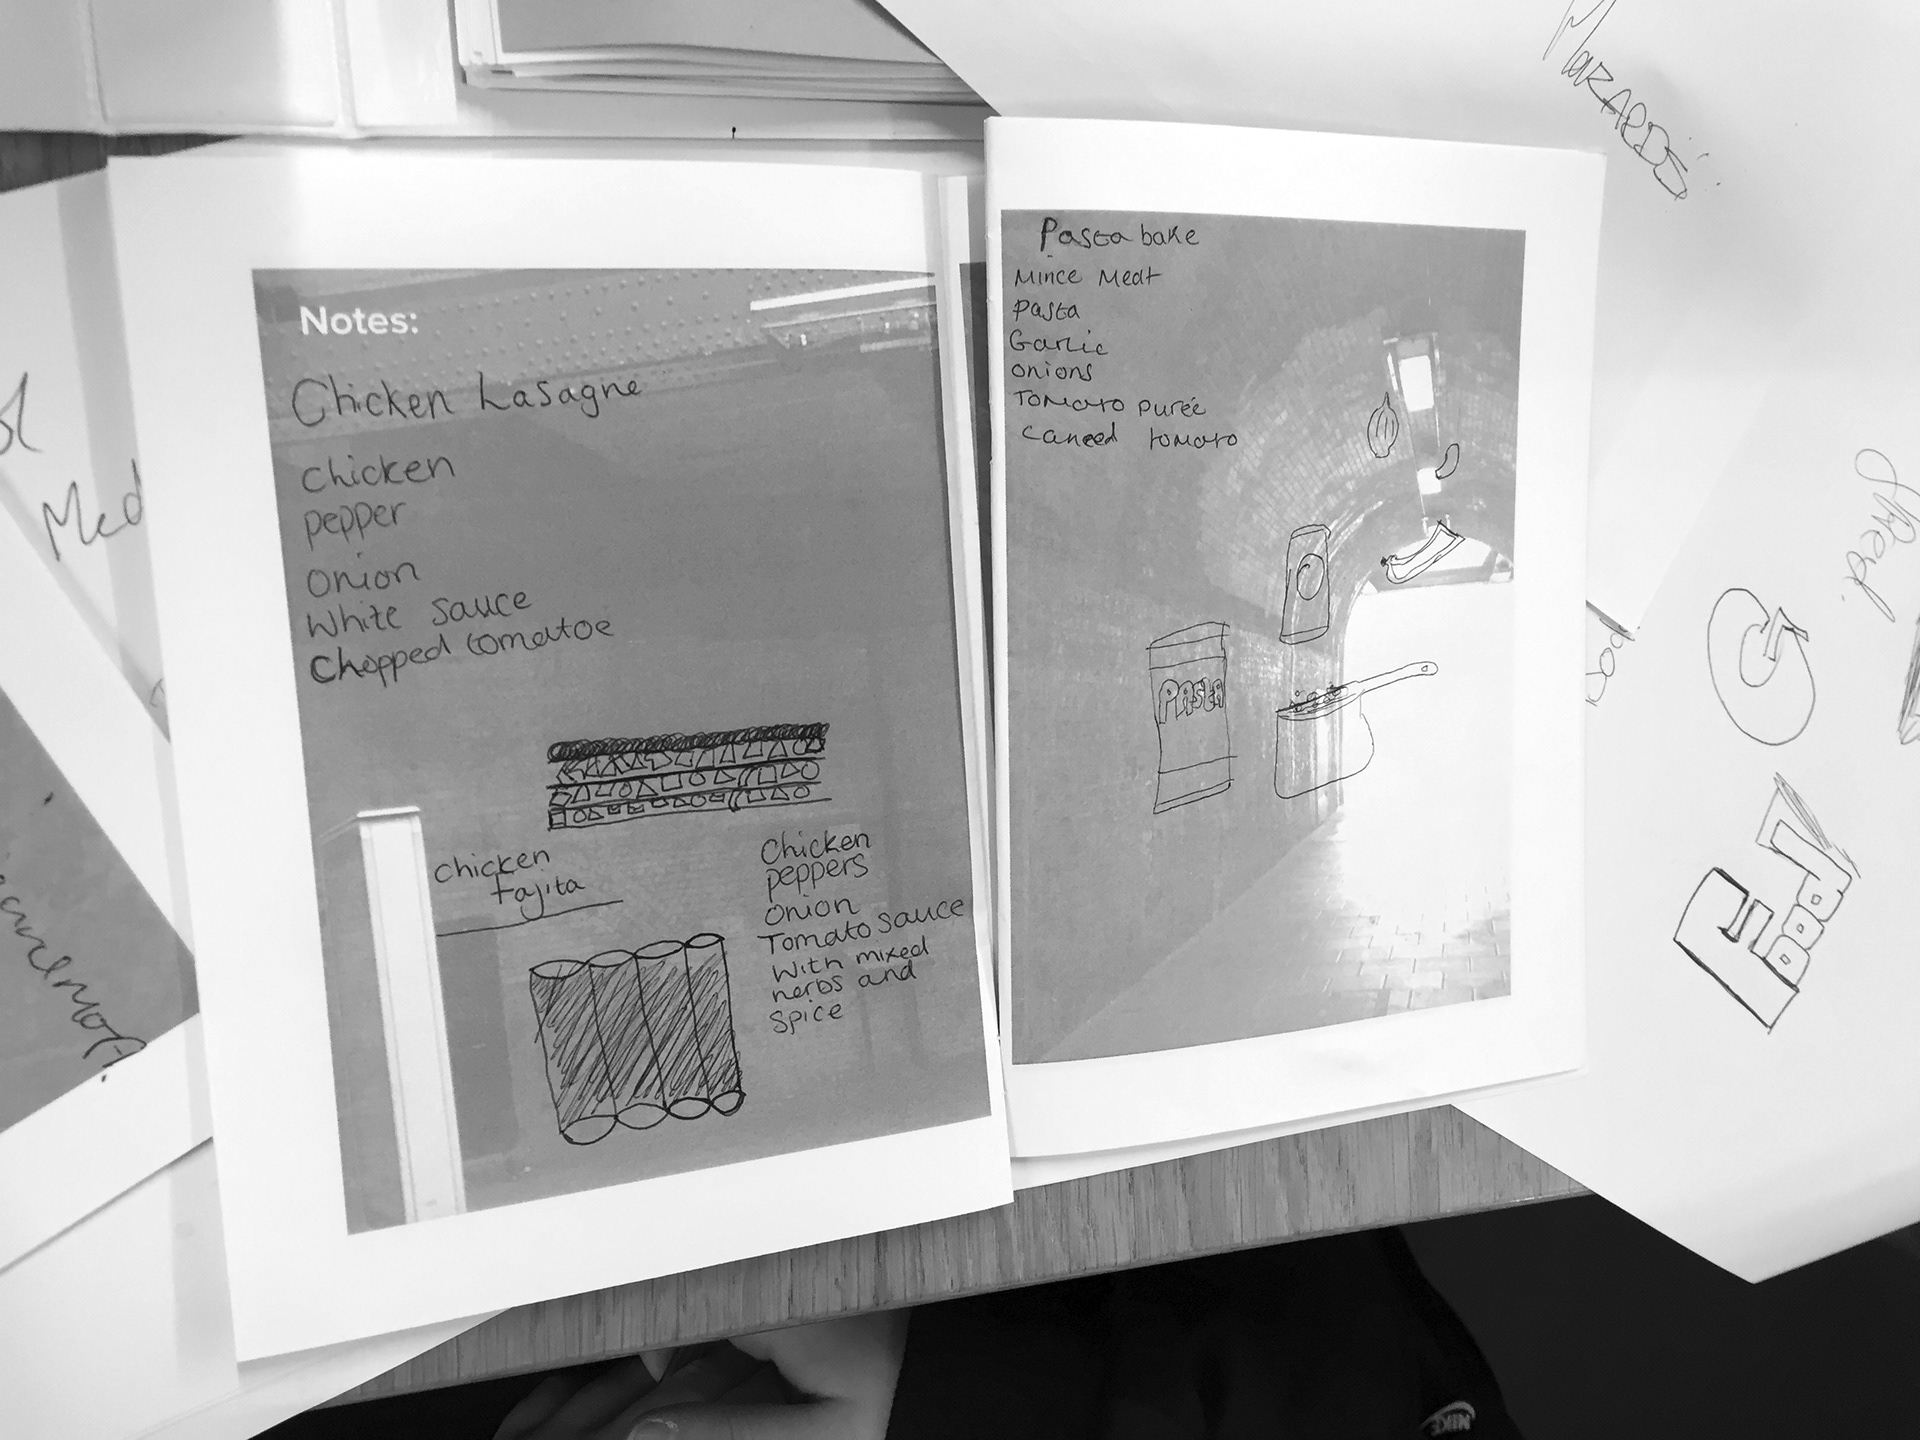 Notes:
Chicken Lasagne
chicken
pepper
onion
White sauce
Chopped tomatoe
chicken
fajita
Chicken
peppers
onion
Tomato sauce
With mixed
herbs and
spice
Pasta bake
Mince Meat
pasta
Garlic
onions
Tomato purée
caneed tomato
PASTA
Med
Food
NIKE